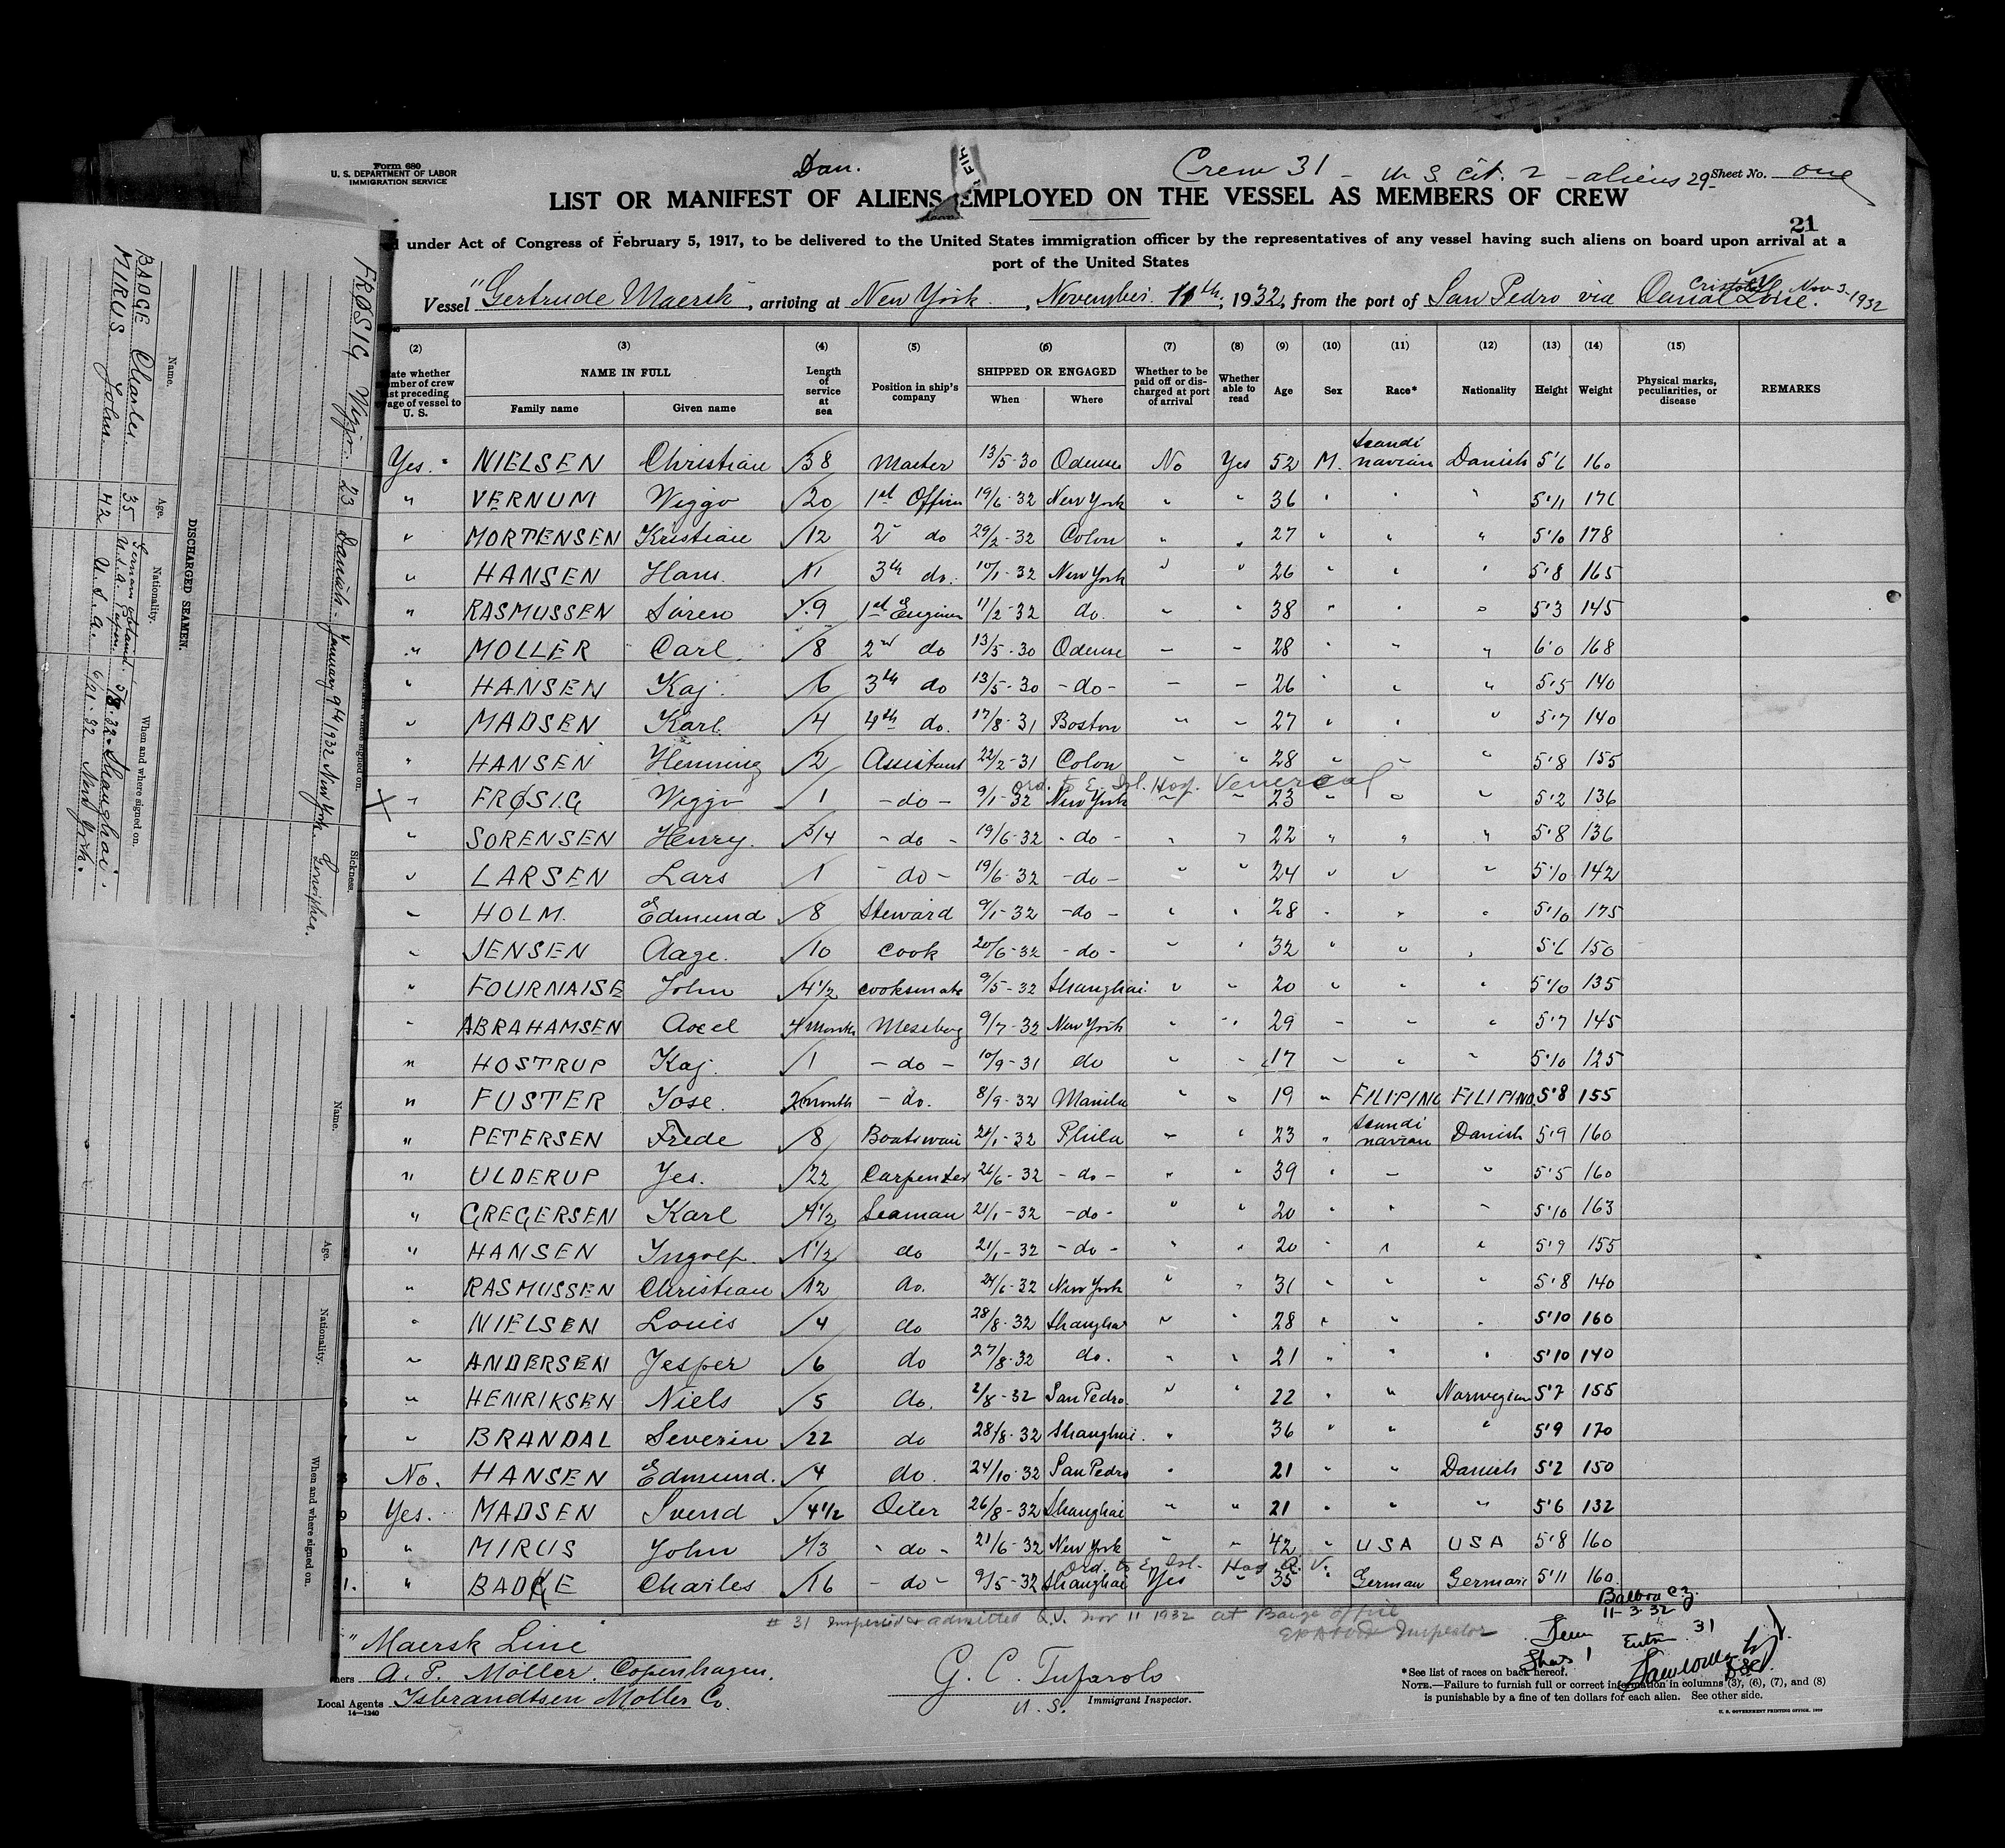 Form 680
U. S. DEPARTMENT OF LABOR
IMMIGRATION SERVICE
Dan.
Crew 31 - U S. cit. 2 - aliens 29 -
Sheet No. one
LIST OR MANIFEST OF ALIENS EMPLOYED ON THE VESSEL AS MEMBERS OF CREW
21
under Act of Congress of February 5, 1917, to be delivered to the United States immigration officer by the representatives of any vessel having such aliens on board upon arrival at a
port of the United States
Vessel "Gertrude Maersk", arriving at New York, November 11th, 1932, from the port of San Pedro via Canal Zone. Cristobal Nov 3-1932
(2) (3) (4) (5) (6) (7) (8) (9) (10) (11) (12) (13) (14) (15)
NAME IN FULL Family name Given name Length of service at sea Position in ship's company SHIPPED OR ENGAGED When Where Whether to be paid off or discharged at port of arrival Whether able to read Age Sex Race* Nationality Height Weight Physical marks, peculiarities, or disease REMARKS
Yes. " NIELSEN Christian 38 Master 13/5-30 Odense No Yes 52 M. Scandinavian Danish 5'6 160
" VERNUM Viggo 20 1st Officer 19/6-32 New York " " 36 " " " 5'11 176
" MORTENSEN Kristian 12 2 do 29/2-32 Colon " " 27 " " " 5'10 178
" HANSEN Hans. 11 3th do. 10/1-32 New York " " 26 " " " 5'8 165
" RASMUSSEN Sören 9 1st Engineer 11/2-32 do. " " 38 " " " 5'3 145
" MOLLER Carl. 8 2nd do 13/5-30 Odense - - 28 " " " 6'0 168
" HANSEN Kaj. 6 3th do 13/5-30 -do- - - 26 " " " 5'5 140
" MADSEN Karl. 4 4th do. 17/8-31 Boston " " 27 " " " 5'7 140
" HANSEN Henning 2 Assistant 22/2-31 Colon " " 28 " " " 5'8 155
Ord. to E. Isl. Hosp. Venereal
X " FRØSIG Viggo 1 -do- 9/1-32 New York " " 23 " " " 5'2 136
" SORENSEN Henry. 3/4 -do- 19/6-32 -do- " " 22 " " " 5'8 136
" LARSEN Lars 1 -do- 19/6-32 -do- " " 24 " " " 5'10 142
" HOLM. Edmund 8 Steward 9/1-32 -do- " " 28 " " " 5'10 175
" JENSEN Aage. 10 cook 20/6-32 -do- " " 32 " " " 5'6 150
" FOURNAISE John 4 1/2 cooksmate 9/5-32 Shanghai. " " 20 " " " 5'10 135
" ABRAHAMSEN Axel 4 months Messboy 9/7-32 New York " " 29 " " " 5'7 145
" HOSTRUP Kaj. 1 -do- 10/9-31 do " " 17 " " " 5'10 125
" FUSTER Jose. 2 month -do. 8/9-32 Manila " " 19 " FILIPINO FILIPINO 5'8 155
" PETERSEN Frede 8 Boatswain 21/1-32 Phila " " 23 " Scandinavian Danish 5'9 160
" ULDERUP Yes. 22 Carpenter 26/6-32 -do- " " 39 " " " 5'5 160
" GREGERSEN Karl 4 1/2 Seaman 21/1-32 -do- " " 20 " " " 5'10 163
" HANSEN Ingolf. 1 1/2 do 21/1-32 -do- " " 20 " " " 5'9 155
" RASMUSSEN Christian 12 do. 24/6-32 New York " " 31 " " " 5'8 140
" NIELSEN Louis 4 do 28/8-32 Shanghai " " 28 " " " 5'10 160
" ANDERSEN Jesper 6 do 27/8-32 do. " " 21 " " " 5'10 140
" HENRIKSEN Niels 5 do. 2/8-32 San Pedro. " " 22 " " Norwegian 5'7 155
" BRANDAL Severin 22 do 28/8-32 Shanghai. " 36 " " " 5'9 170
No. HANSEN Edmund. 4 do. 24/10-32 San Pedro " 21 " " Danish 5'2 150
Yes. MADSEN Svend 4 1/2 Oiler 26/8-32 Shanghai " " 21 " " " 5'6 132
" MIRUS John 13 -do- 21/6-32 New York " " 42 " USA USA 5'8 160
Ord. to E. Isl. Hosp. V.
" BADGE Charles 16 -do- 9/5-32 Shanghai Yes " 35 German German 5'11 160
# 31 Inspected & admitted Nov 11 1932 at Barge office
Inspector
Balboa C.Z.
11-3-32
31
Maersk Line
A. P. Möller. Copenhagen.
Local Agents Isbrandtsen Moller Co.
14-1240
G. C. Tufarolo
U. S. Immigrant Inspector.
*See list of races on back hereof.
NOTE.—Failure to furnish full or correct information in columns (3), (6), (7), and (8)
is punishable by a fine of ten dollars for each alien. See other side.
U. S. GOVERNMENT PRINTING OFFICE. 1929
FRØSIG Viggo. 23 Danish - January 9th 1932 New York
Sickness.
DISCHARGED SEAMEN.
Name. Age. Nationality. When and where signed on.
BADGE Charles 35 German 5/8-32 Shanghai.
MIRUS John 42 U.S.A. 6/21-32 New York.
Name. Age. Nationality. When and where signed on.